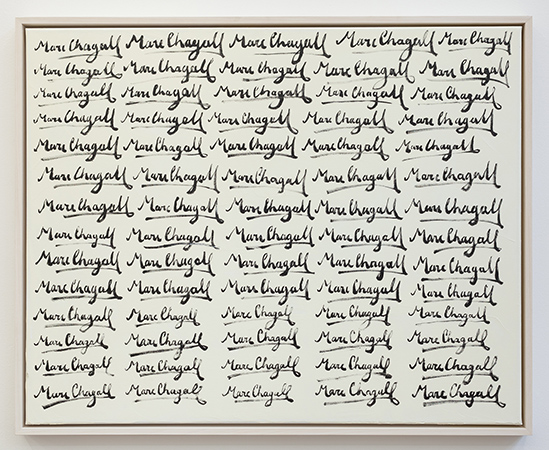 Marc Chagall Marc Chagall Marc Chagall Marc Chagall Marc Chagall
Marc Chagall Marc Chagall Marc Chagall Marc Chagall Marc Chagall
Marc Chagall Marc Chagall Marc Chagall Marc Chagall Marc Chagall
Marc Chagall Marc Chagall Marc Chagall Marc Chagall Marc Chagall
Marc Chagall Marc Chagall Marc Chagall Marc Chagall Marc Chagall
Marc Chagall Marc Chagall Marc Chagall Marc Chagall Marc Chagall
Marc Chagall Marc Chagall Marc Chagall Marc Chagall Marc Chagall
Marc Chagall Marc Chagall Marc Chagall Marc Chagall Marc Chagall
Marc Chagall Marc Chagall Marc Chagall Marc Chagall Marc Chagall
Marc Chagall Marc Chagall Marc Chagall Marc Chagall Marc Chagall
Marc Chagall Marc Chagall Marc Chagall Marc Chagall Marc Chagall
Marc Chagall Marc Chagall Marc Chagall Marc Chagall Marc Chagall
Marc Chagall Marc Chagall Marc Chagall Marc Chagall Marc Chagall
Marc Chagall Marc Chagall Marc Chagall Marc Chagall Marc Chagall